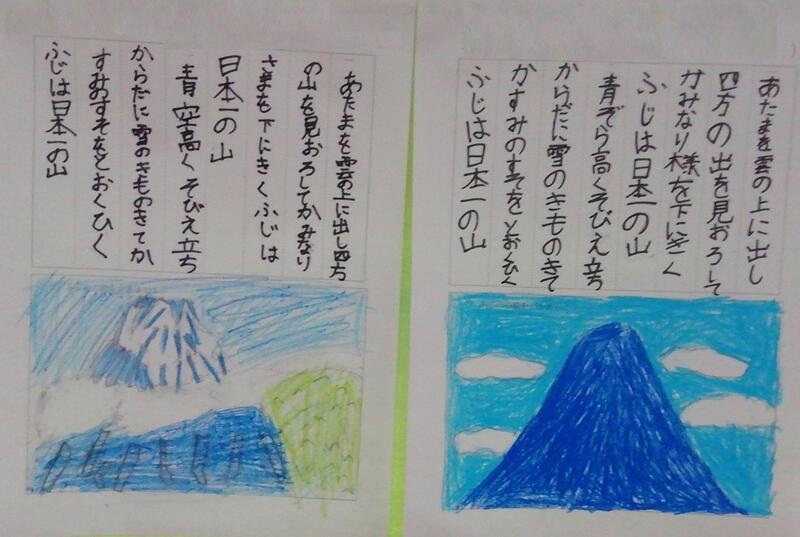 あたまを雲の上に出し
四方の出を見おろして
かみなり様を下にきく
ふじは日本一の山
青ぞら高くそびえ立ち
からだに雪のきものきて
かすみのすそをとおくひく
ふじは日本一の山
あたまを雲の上に出し四方
の山を見おろしてかみなり
さまを下にきくふじは
日本一の山
青空高くそびえ立ち
からだに雪のきものきてか
すみのすそをとおくひく
ふじは日本一の山